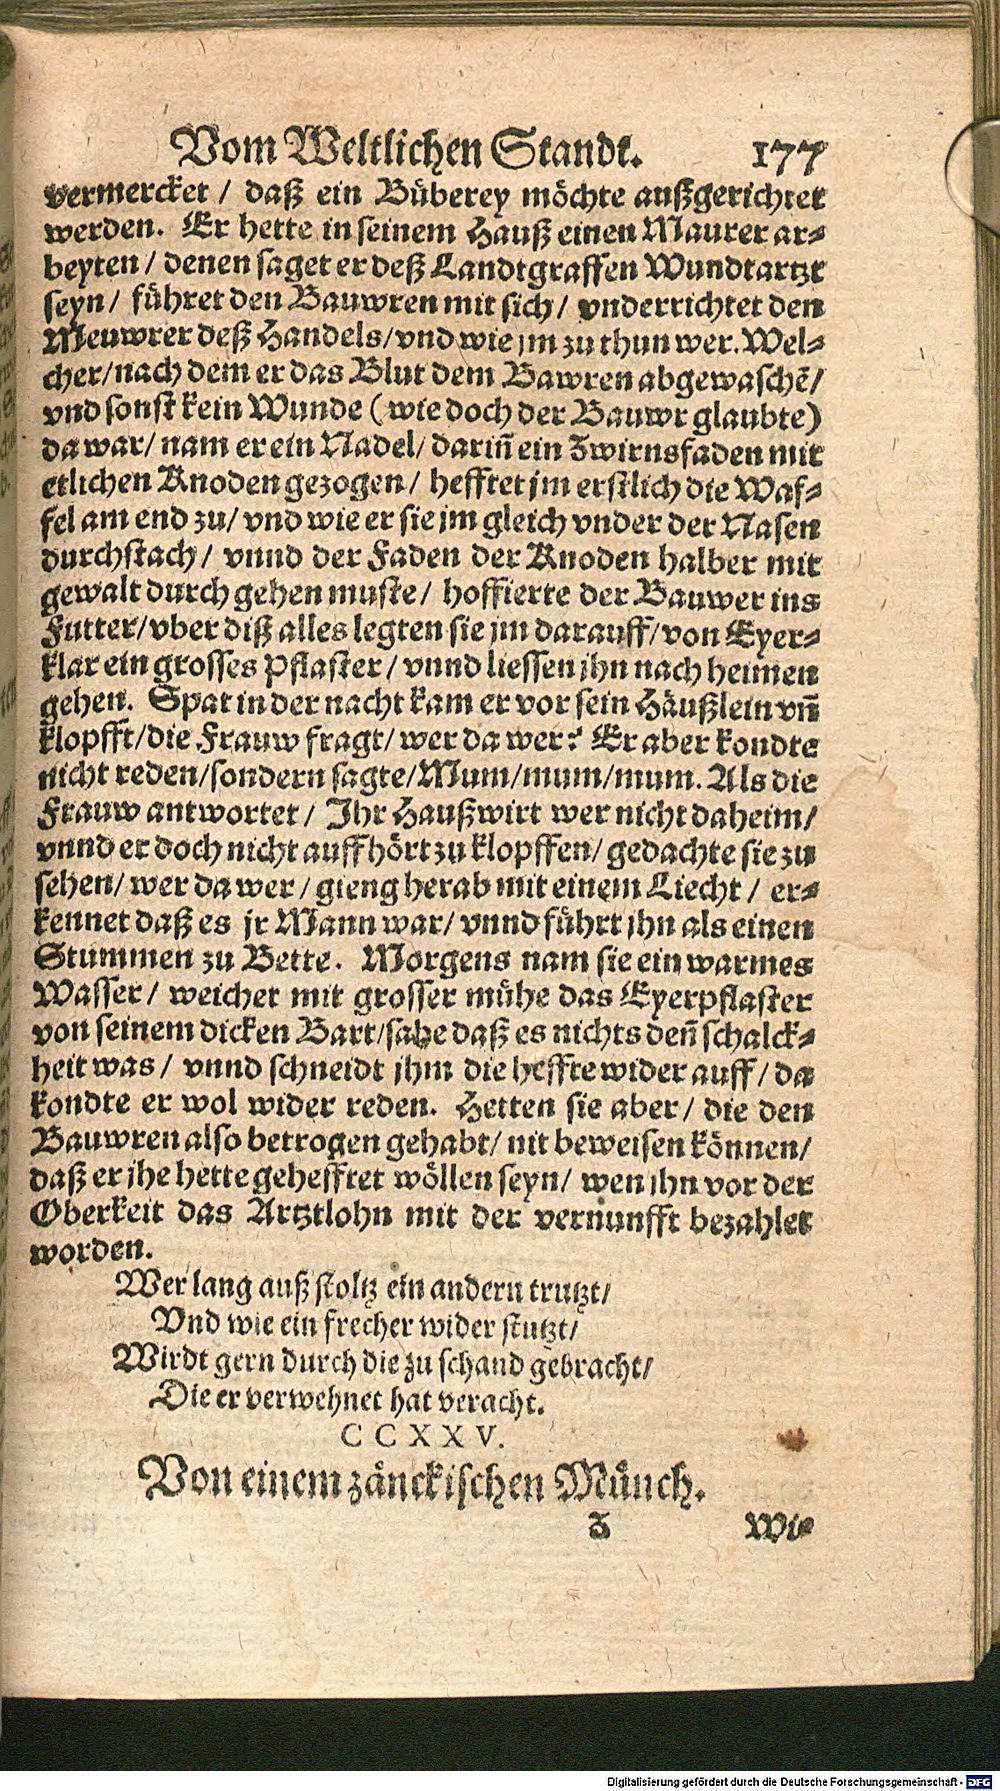 Vom Weltlichen Standt. 177
vermercket / daß ein Büberey möchte außgerichtet
werden. Er hette in seinem Hauß einen Maurer ar⸗
beyten / denen saget er deß Landtgraffen Wundtartzt
seyn / führet den Bauwren mit sich / vnderrichtet den
Meuwrer deß Handels / vnd wie jm zu thun wer. Wel⸗
cher / nach dem er das Blut dem Bawren abgewaschē /
vnd sonst kein Wunde (wie doch der Bauwr glaubte)
da war / nam er ein Nadel / dariñ ein Zwirnsfaden mit
etlichen Knoden gezogen / hefftet jm erstlich die Waf⸗
fel am end zu / vnd wie er sie jm gleich vnder der Nasen
durchstach / vnnd der Faden der Knoden halber mit
gewalt durch gehen muste / hoffierte der Bauwer ins
Futter / vber diß alles legten sie jm darauff / von Eyer⸗
klar ein grosses Pflaster / vnnd liessen jhn nach heimen
gehen. Spat in der nacht kam er vor sein Häußlein vñ
klopfft / die Frauw fragt / wer da wer? Er aber kondte
nicht reden / sondern sagte / Mum / mum / mum. Als die
Frauw antwortet / Ihr Haußwirt wer nicht daheim /
vnnd er doch nicht auffhört zu klopffen / gedachte sie zu
sehen / wer da wer / gieng herab mit einem Liecht / er⸗
kennet daß es jr Mann war / vnnd führt jhn als einen
Stummen zu Bette. Morgens nam sie ein warmes
Wasser / weichet mit grosser mühe das Eyerpflaster
von seinem dicken Bart / sahe daß es nichts deñ schalck⸗
heit was / vnnd schneidt jhm die heffte wider auff / da
kondte er wol wider reden. Hetten sie aber / die den
Bauwren also betrogen gehabt / nit beweisen können /
daß er jhe hette gehefftet wöllen seyn / wen jhn vor der
Oberkeit das Artztlohn mit der vernunfft bezahlet
worden.
Wer lang auß stoltz ein andern trutzt /
Vnd wie ein frecher wider stutzt /
Wirdt gern durch die zu schand gebracht /
Die er verwehnet hat veracht.
CCXXV.
Von einem zänckischen Münch.
Z Wi⸗
Digitalisierung gefördert durch die Deutsche Forschungsgemeinschaft - DFG